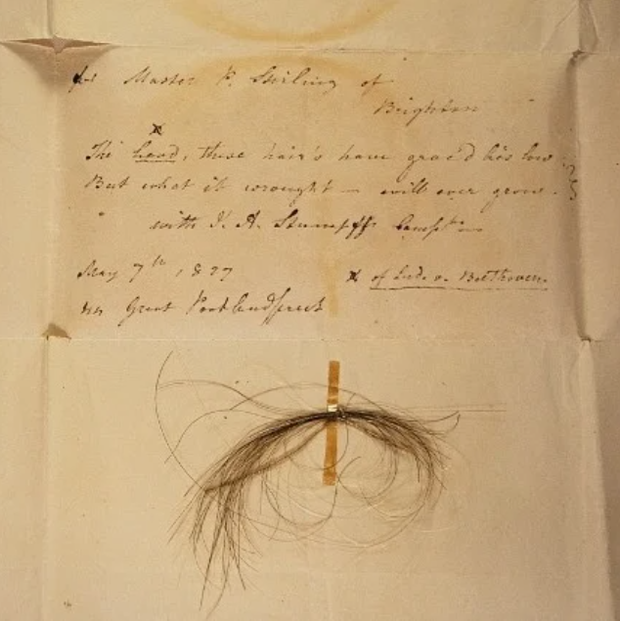 for Master P. Stirling of
Brighton
x
The head, these hair's have grac'd his low
But what it wrought — will ever grow.
with J. A. Stumpff's Compts
May 7th, 1827 x of Lud. v. Beethoven.
Great Portland street